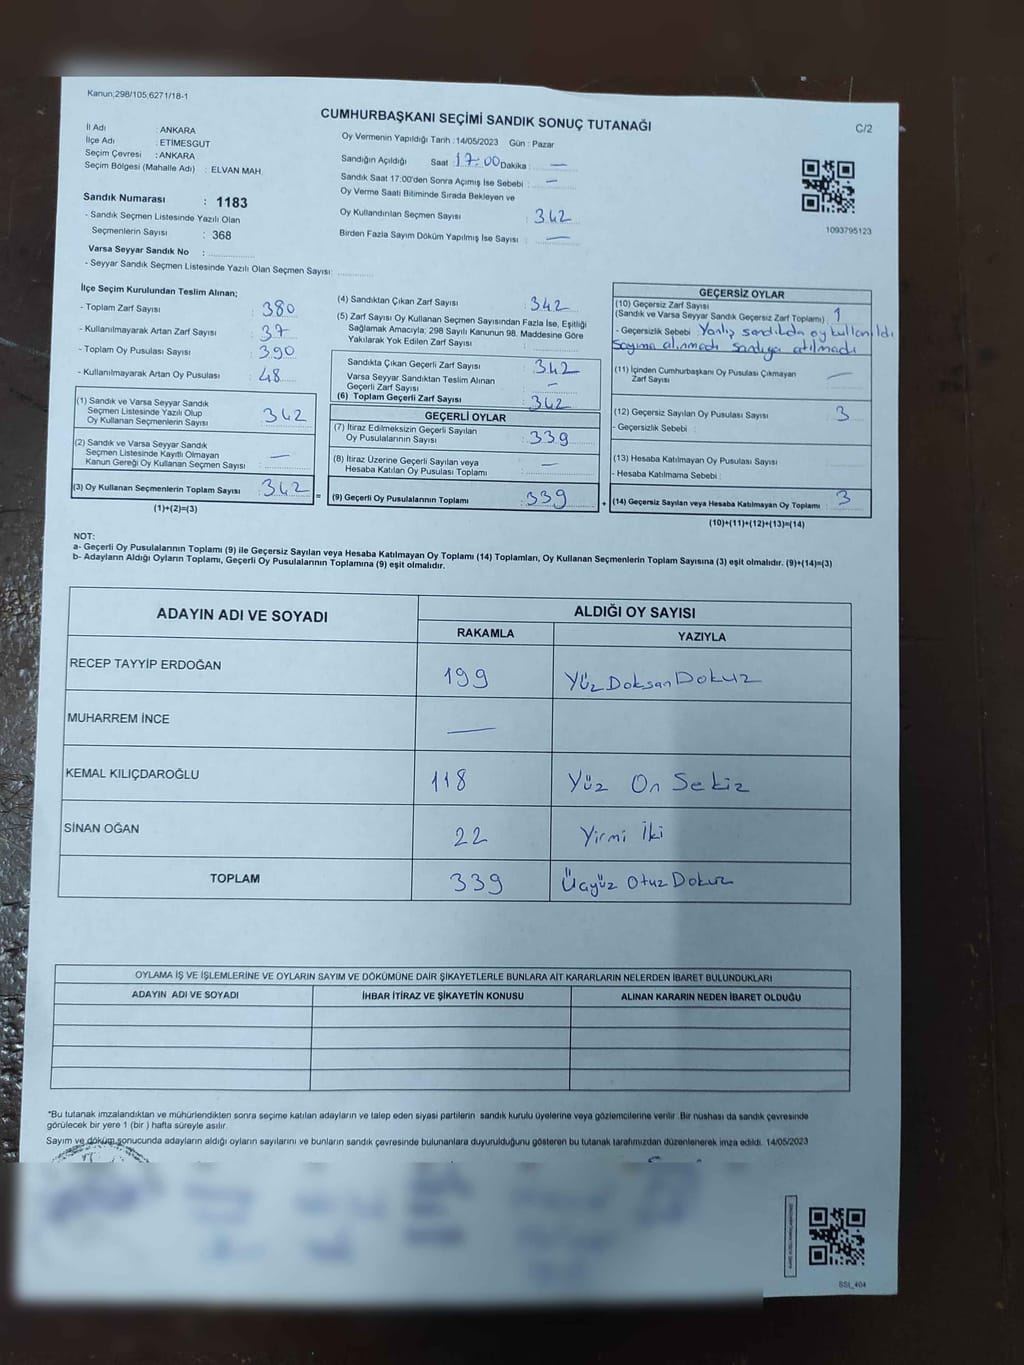 Kanun;298/105;6271/18-1
CUMHURBAŞKANI SEÇİMİ SANDIK SONUÇ TUTANAĞI
C/2
İl Adı : ANKARA
İlçe Adı : ETIMESGUT
Seçim Çevresi : ANKARA
Seçim Bölgesi (Mahalle Adı) : ELVAN MAH.
Sandık Numarası : 1183
- Sandık Seçmen Listesinde Yazılı Olan
Seçmenlerin Sayısı : 368
Varsa Seyyar Sandık No :
- Seyyar Sandık Seçmen Listesinde Yazılı Olan Seçmen Sayısı:
Oy Vermenin Yapıldığı Tarih : 14/05/2023 Gün : Pazar
Sandığın Açıldığı Saat 17:00 Dakika : —
Sandık Saat 17:00'den Sonra Açımış İse Sebebi : —
Oy Verme Saati Bitiminde Sırada Bekleyen ve
Oy Kullandırılan Seçmen Sayısı : 342
Birden Fazla Sayım Döküm Yapılmış İse Sayısı : —
1093795123
İlçe Seçim Kurulundan Teslim Alınan;
- Toplam Zarf Sayısı : 380
- Kullanılmayarak Artan Zarf Sayısı : 37
- Toplam Oy Pusulası Sayısı : 390
- Kullanılmayarak Artan Oy Pusulası : 48
(1) Sandık ve Varsa Seyyar Sandık
Seçmen Listesinde Yazılı Olup
Oy Kullanan Seçmenlerin Sayısı : 342
(2) Sandık ve Varsa Seyyar Sandık
Seçmen Listesinde Kayıtlı Olmayan
Kanun Gereği Oy Kullanan Seçmen Sayısı : —
(3) Oy Kullanan Seçmenlerin Toplam Sayısı : 342
(1)+(2)=(3)
(4) Sandıktan Çıkan Zarf Sayısı : 342
(5) Zarf Sayısı Oy Kullanan Seçmen Sayısından Fazla İse, Eşitliği
Sağlamak Amacıyla; 298 Sayılı Kanunun 98. Maddesine Göre
Yakılarak Yok Edilen Zarf Sayısı :
Sandıkta Çıkan Geçerli Zarf Sayısı : 342
Varsa Seyyar Sandıktan Teslim Alınan
Geçerli Zarf Sayısı : —
(6) Toplam Geçerli Zarf Sayısı : 342
GEÇERLİ OYLAR
(7) İtiraz Edilmeksizin Geçerli Sayılan
Oy Pusulalarının Sayısı : 339
(8) İtiraz Üzerine Geçerli Sayılan veya
Hesaba Katılan Oy Pusulası Toplamı : —
= (9) Geçerli Oy Pusulalarının Toplamı : 339
GEÇERSİZ OYLAR
(10) Geçersiz Zarf Sayısı
(Sandık ve Varsa Seyyar Sandık Geçersiz Zarf Toplamı) : 1
- Geçersizlik Sebebi : Yanlış sandıkda oy kullanıldı
sayıma alınmadı sandığa atılmadı
(11) İçinden Cumhurbaşkanı Oy Pusulası Çıkmayan
Zarf Sayısı : —
(12) Geçersiz Sayılan Oy Pusulası Sayısı : 3
- Geçersizlik Sebebi :
(13) Hesaba Katılmayan Oy Pusulası Sayısı :
- Hesaba Katılmama Sebebi :
+ (14) Geçersiz Sayılan veya Hesaba Katılmayan Oy Toplamı : 3
(10)+(11)+(12)+(13)=(14)
NOT:
a- Geçerli Oy Pusulalarının Toplamı (9) ile Geçersiz Sayılan veya Hesaba Katılmayan Oy Toplamı (14) Toplamları, Oy Kullanan Seçmenlerin Toplam Sayısına (3) eşit olmalıdır. (9)+(14)=(3)
b- Adayların Aldığı Oyların Toplamı, Geçerli Oy Pusulalarının Toplamına (9) eşit olmalıdır.
ADAYIN ADI VE SOYADI ALDIĞI OY SAYISI
RAKAMLA YAZIYLA
RECEP TAYYİP ERDOĞAN 199 Yüz Doksan Dokuz
MUHARREM İNCE —
KEMAL KILIÇDAROĞLU 118 Yüz On Sekiz
SİNAN OĞAN 22 Yirmi İki
TOPLAM 339 Üçyüz Otuz Dokuz
OYLAMA İŞ VE İŞLEMLERİNE VE OYLARIN SAYIM VE DÖKÜMÜNE DAİR ŞİKAYETLERLE BUNLARA AİT KARARLARIN NELERDEN İBARET BULUNDUKLARI
ADAYIN ADI VE SOYADI İHBAR İTİRAZ VE ŞİKAYETİN KONUSU ALINAN KARARIN NEDEN İBARET OLDUĞU
*Bu tutanak imzalandıktan ve mühürlendikten sonra seçime katılan adayların ve talep eden siyasi partilerin sandık kurulu üyelerine veya gözlemcilerine verilir. Bir nüshası da sandık çevresinde
görülecek bir yere 1 (bir ) hafta süreyle asılır.
Sayım ve döküm sonucunda adayların aldığı oyların sayılarını ve bunların sandık çevresinde bulunanlara duyurulduğunu gösteren bu tutanak tarafımızdan düzenlenerek imza edildi. 14/05/2023
SSI_404